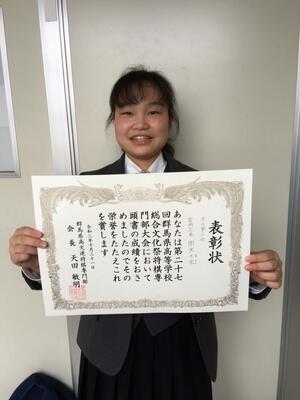 表彰状
あなたは第二十七
回群馬県高等学校
総合文化祭将棋専
門部大会において
頭書の成績をおさ
めましたのでその
栄誉をたたえこれ
を賞します
令和三年十月三十一日
群馬県高文連将棋専門部
会長 天田敏明